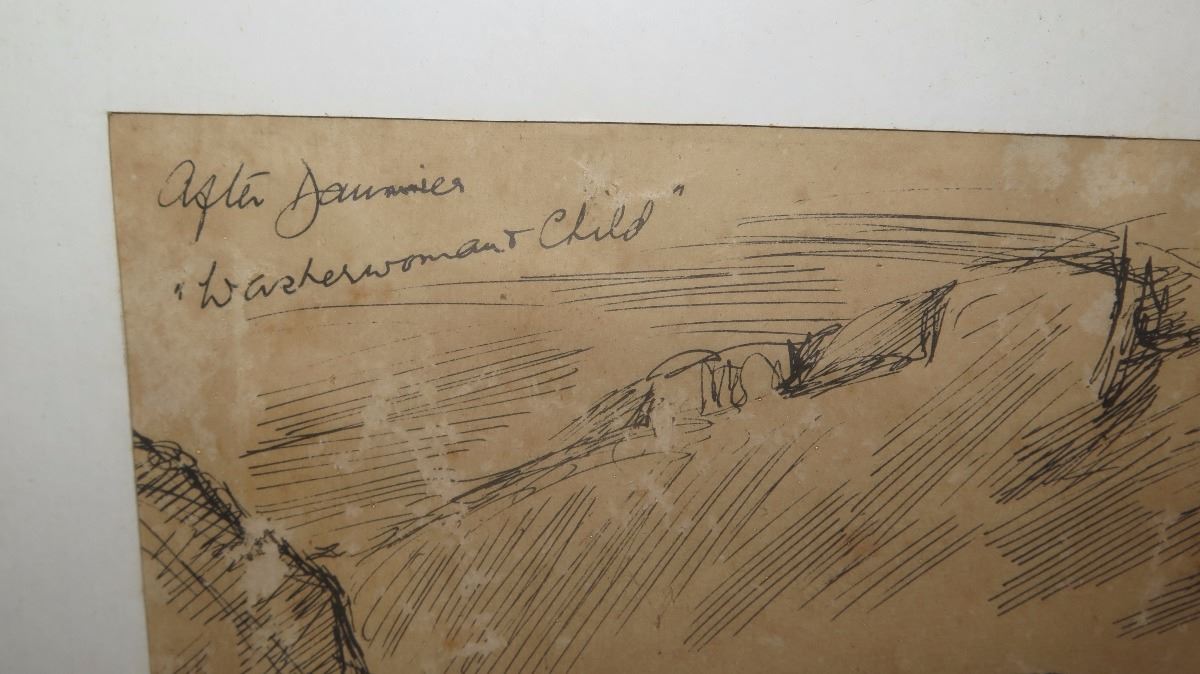 After Daumier
"Washerwoman & Child"